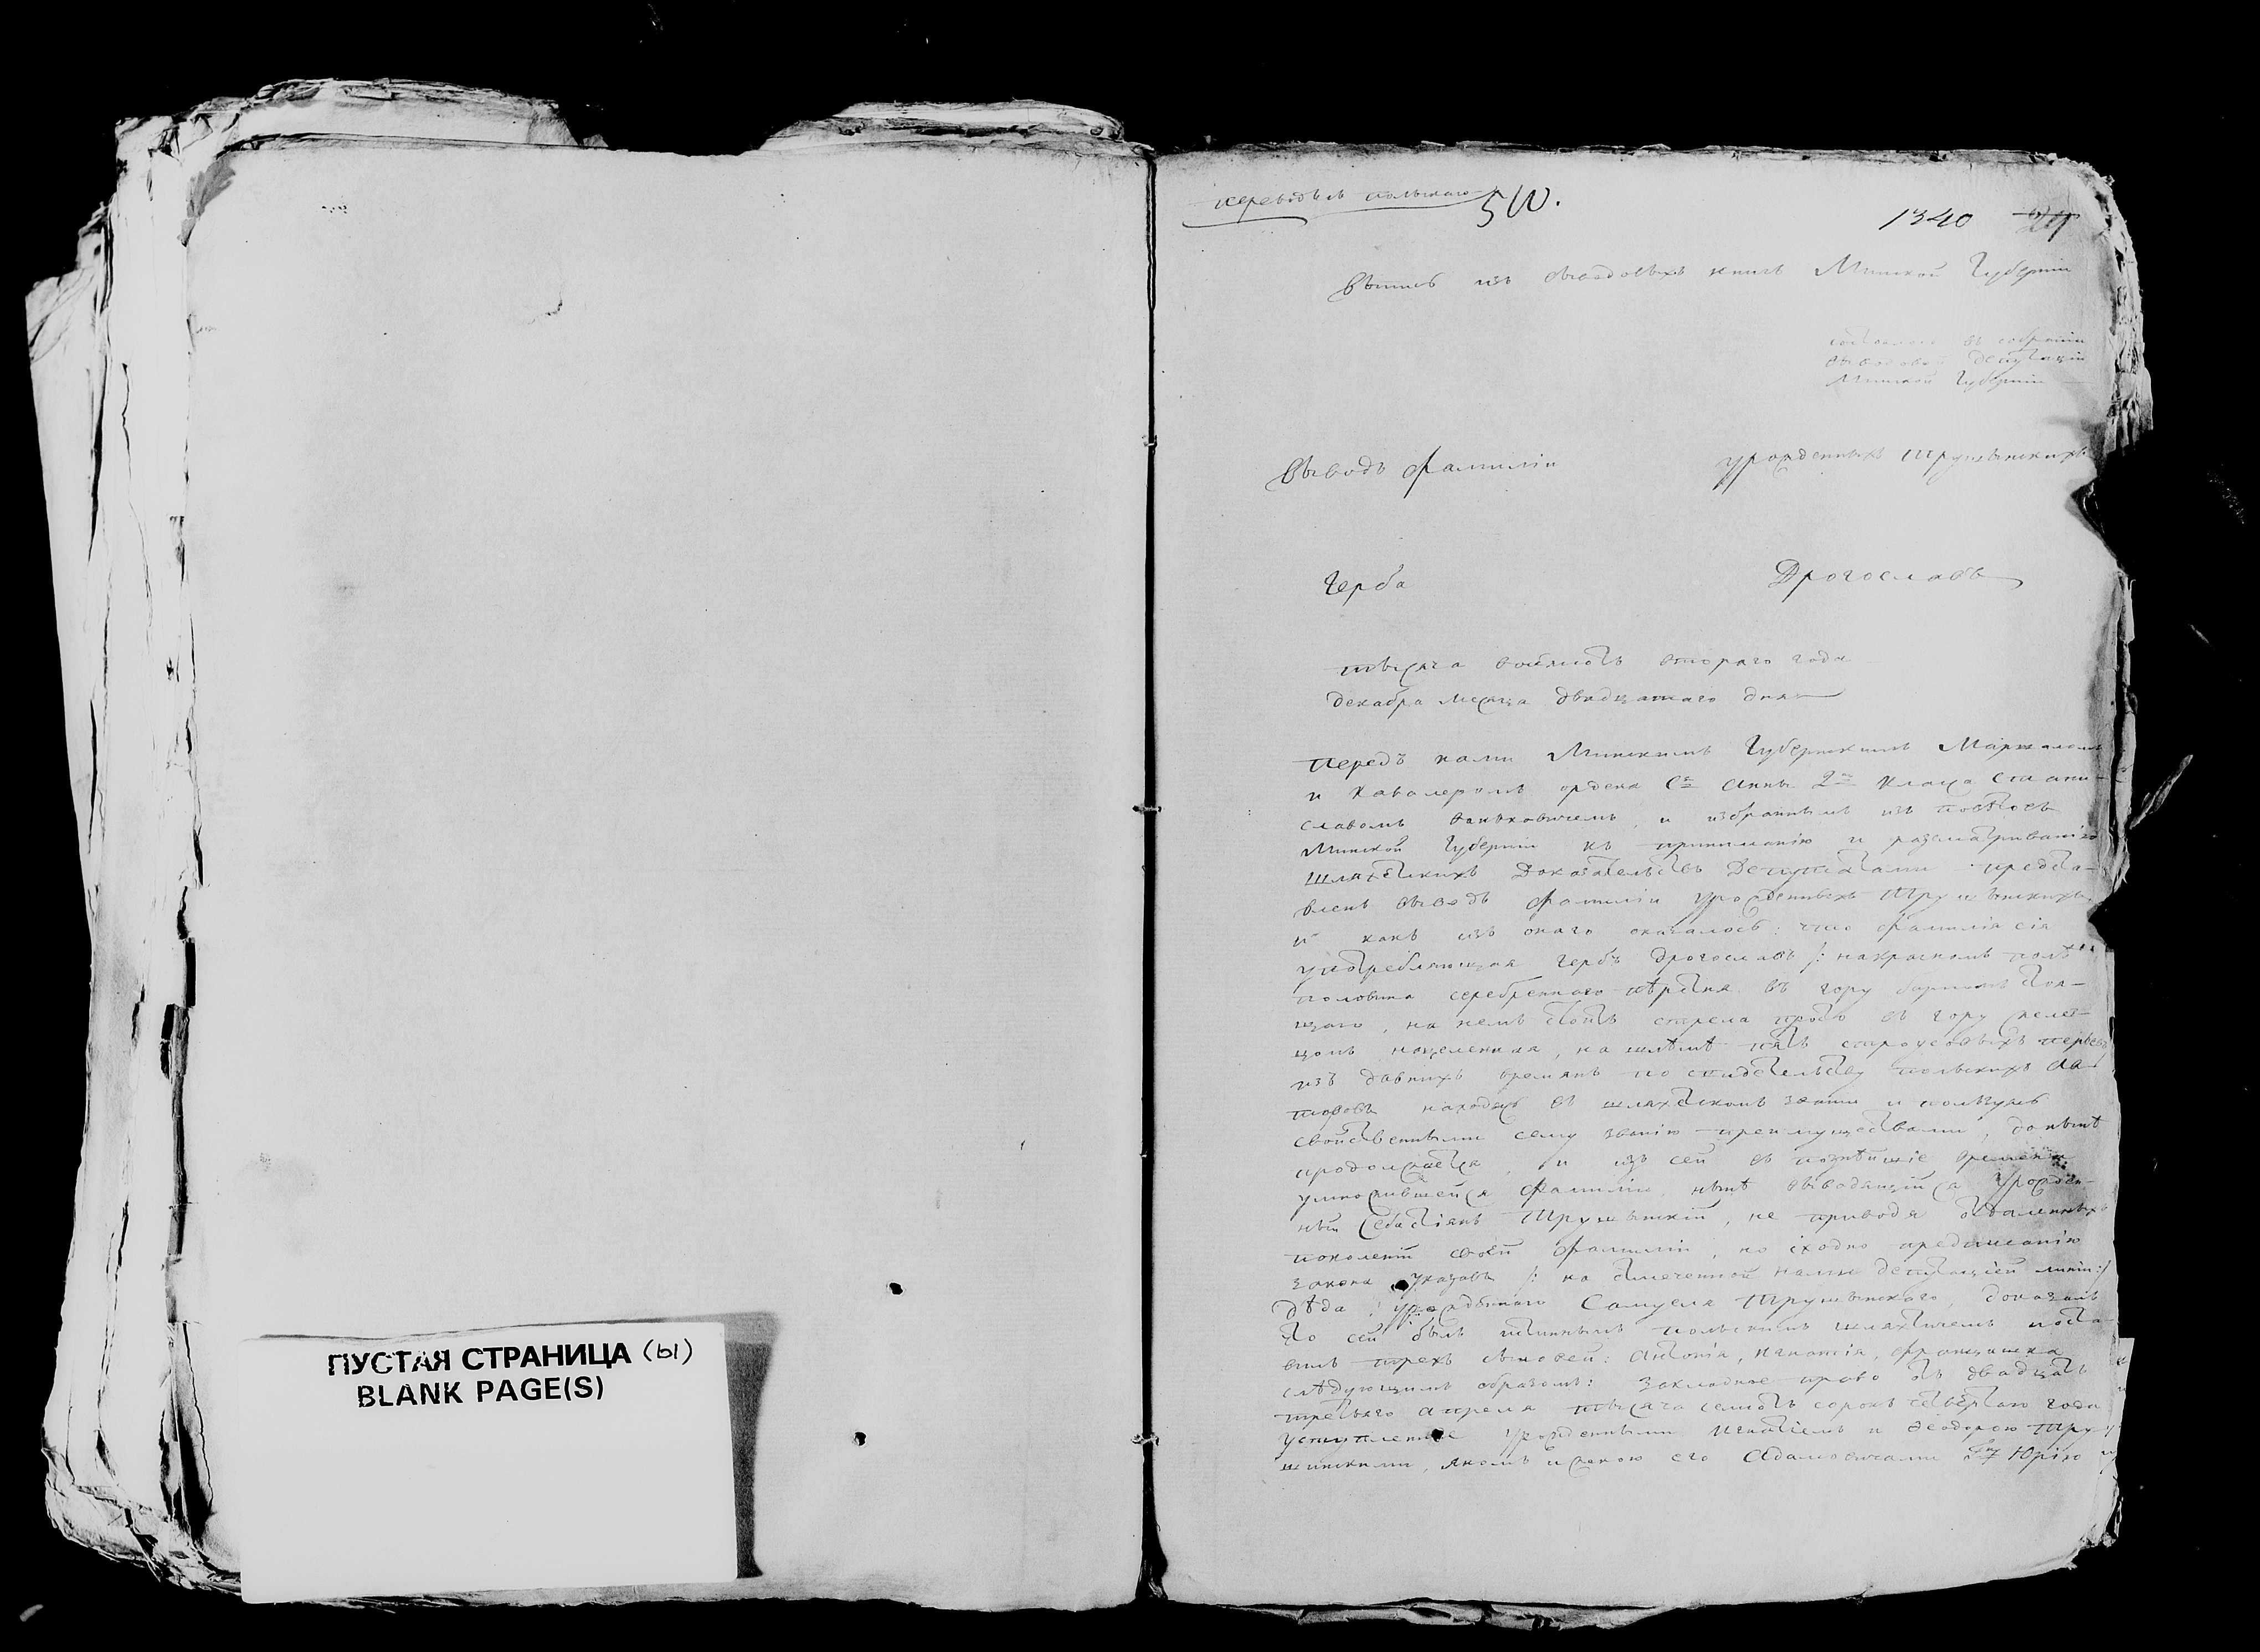 ПУСТАЯ СТРАНИЦА (ы)
BLANK PAGE(S)
переводъ съ польскаго
510.
1340 29
Выпись изъ выводовыхъ книгъ Минской Губернiи
въ собранiи
выводовой Депутацiи
Минской Губернiи
Выводъ Фамилiи урожденныхъ Трушынскихъ
Герба Дрогославъ
тысяча восѣмсотъ втораго года
декабра месяца двадцатаго дня
Передъ нами Минскимъ Губернскимъ Маршаломъ
и Кавалеромъ ордена Св Анны 2го Класа Стани-
славомъ Ваньковичемъ, и избранными изъ повѣтовъ
Минской Губернiи къ приниманiю и разсматриванiю
шляхетскихъ Доказательствъ Депутатами предста-
вленъ выводъ Фамилiи Урожденныхъ Трушынскихъ
и какъ изъ онаго оказалось: что фамилiя сiя
употребляющая гербъ Дрогославъ /: на красномъ полѣ
половина серебреннаго пѣрстня въ гору стоя-
щаго, на немъ стоитъ стрела просто въ гору желез-
цомъ нацеленная, на шлѣмѣ пять строусовыхъ перьевъ
изъ давнихъ времянъ по свидѣтельству польскихъ Ав-
торовъ находясь въ шляхетскомъ званiи и пользуясь
свойственными сему званiю преимуществами, донынѣ
продолжается, и изъ сей въ позднѣйшiе времена
умножившейся Фамилiи, нынѣ выводящiйся Урожден-
ный Себастiянъ Трушынскiй, не приводя отдаленныхъ
поколенiй своей Фамилiи, но сходно предписанiю
закона указавъ /: на отмеченной нами депутацiей линiи:/
дѣда урожденнаго Самуеля Трушынскаго, доказалъ
что сей былъ истиннымъ польскимъ шляхтичемъ, оста-
вилъ трехъ сыновей: Антонiя, Игнатiя, Францишка
слѣдующимъ образомъ: Закладное право отъ двадцать
третьяго апреля тысяча семсотъ сорокъ четвертаго года
уступленное урожденными Игнатiемъ и Феодорою Тру-
шинскими, его Адамовичами Юрiю